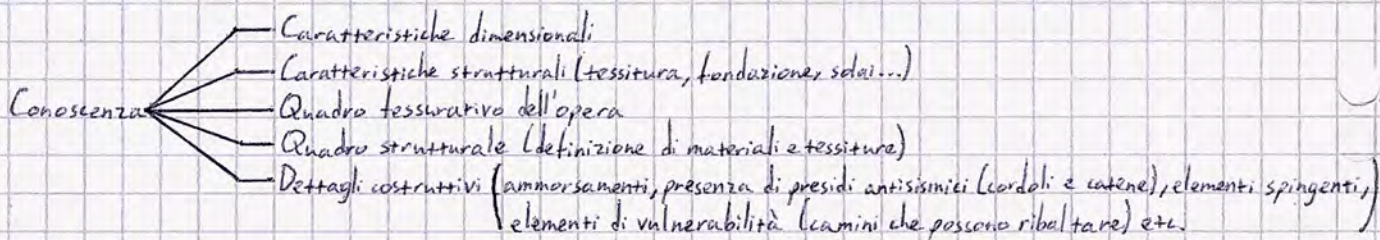 Caratteristiche dimensionali
Caratteristiche strutturali (tessitura, fondazione, solai...)
Conoscenza
Quadro fessurativo dell'opera
Quadro strutturale (definizione di materiali e tessiture)
Dettagli costruttivi (ammorsamenti, presenza di presidi antisismici (cordoli e catene), elementi spingenti,
elementi di vulnerabilità (camini che possono ribaltare) etc.)